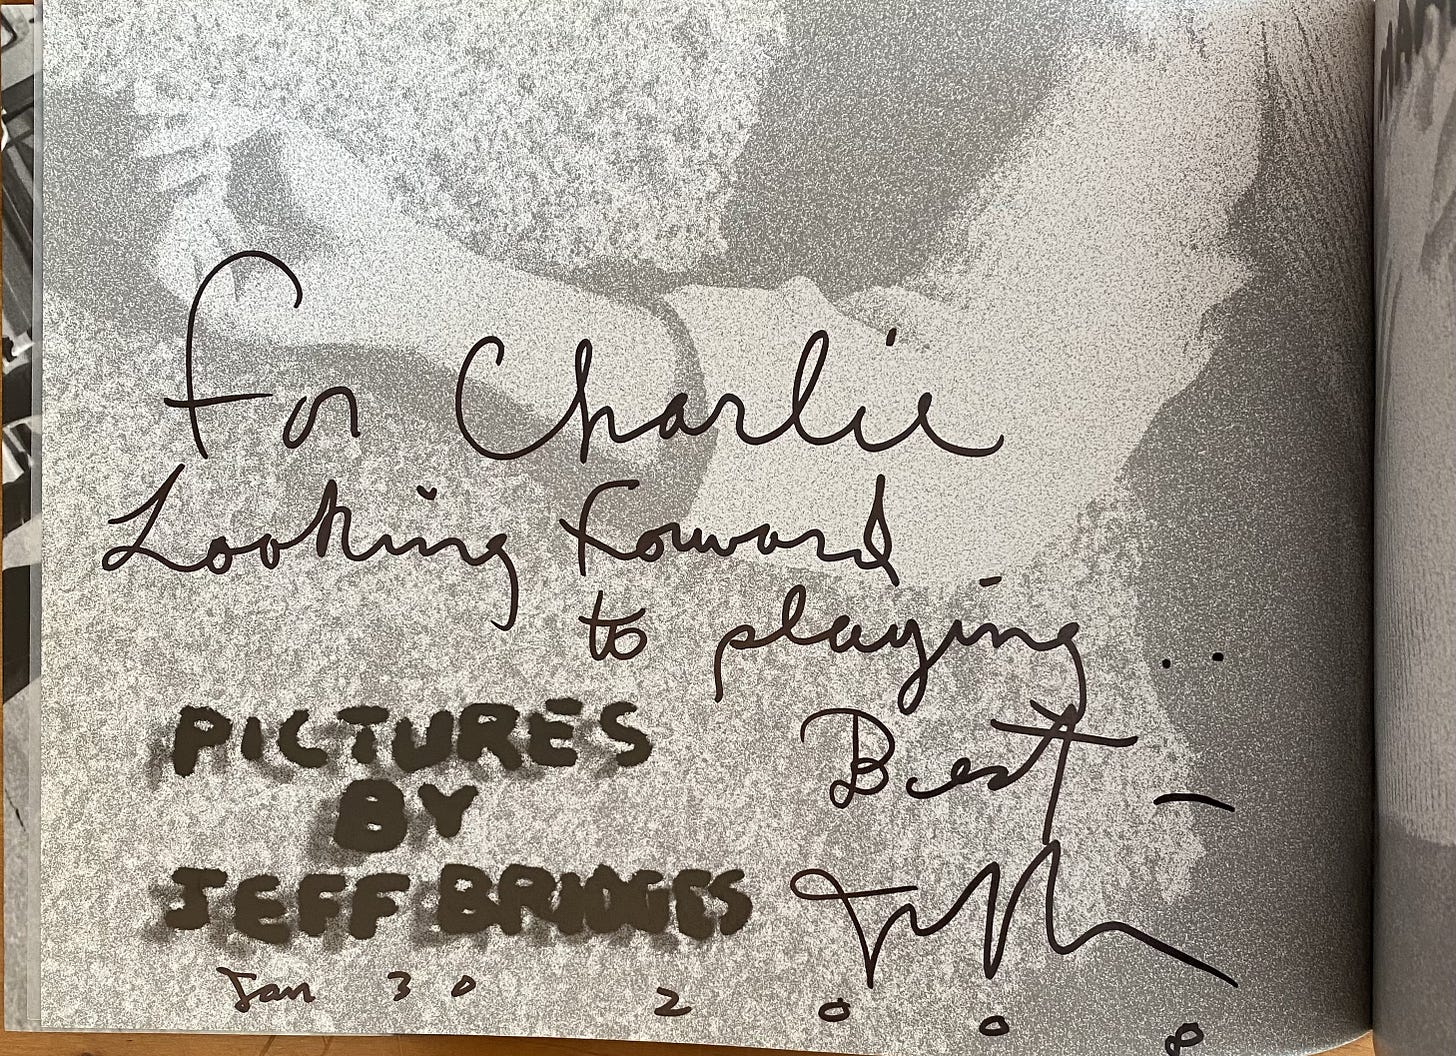 For Charlie
Looking forward
to playing..
Best –
Jeff
PICTURES
BY
JEFF BRIDGES
Jan 30 2008